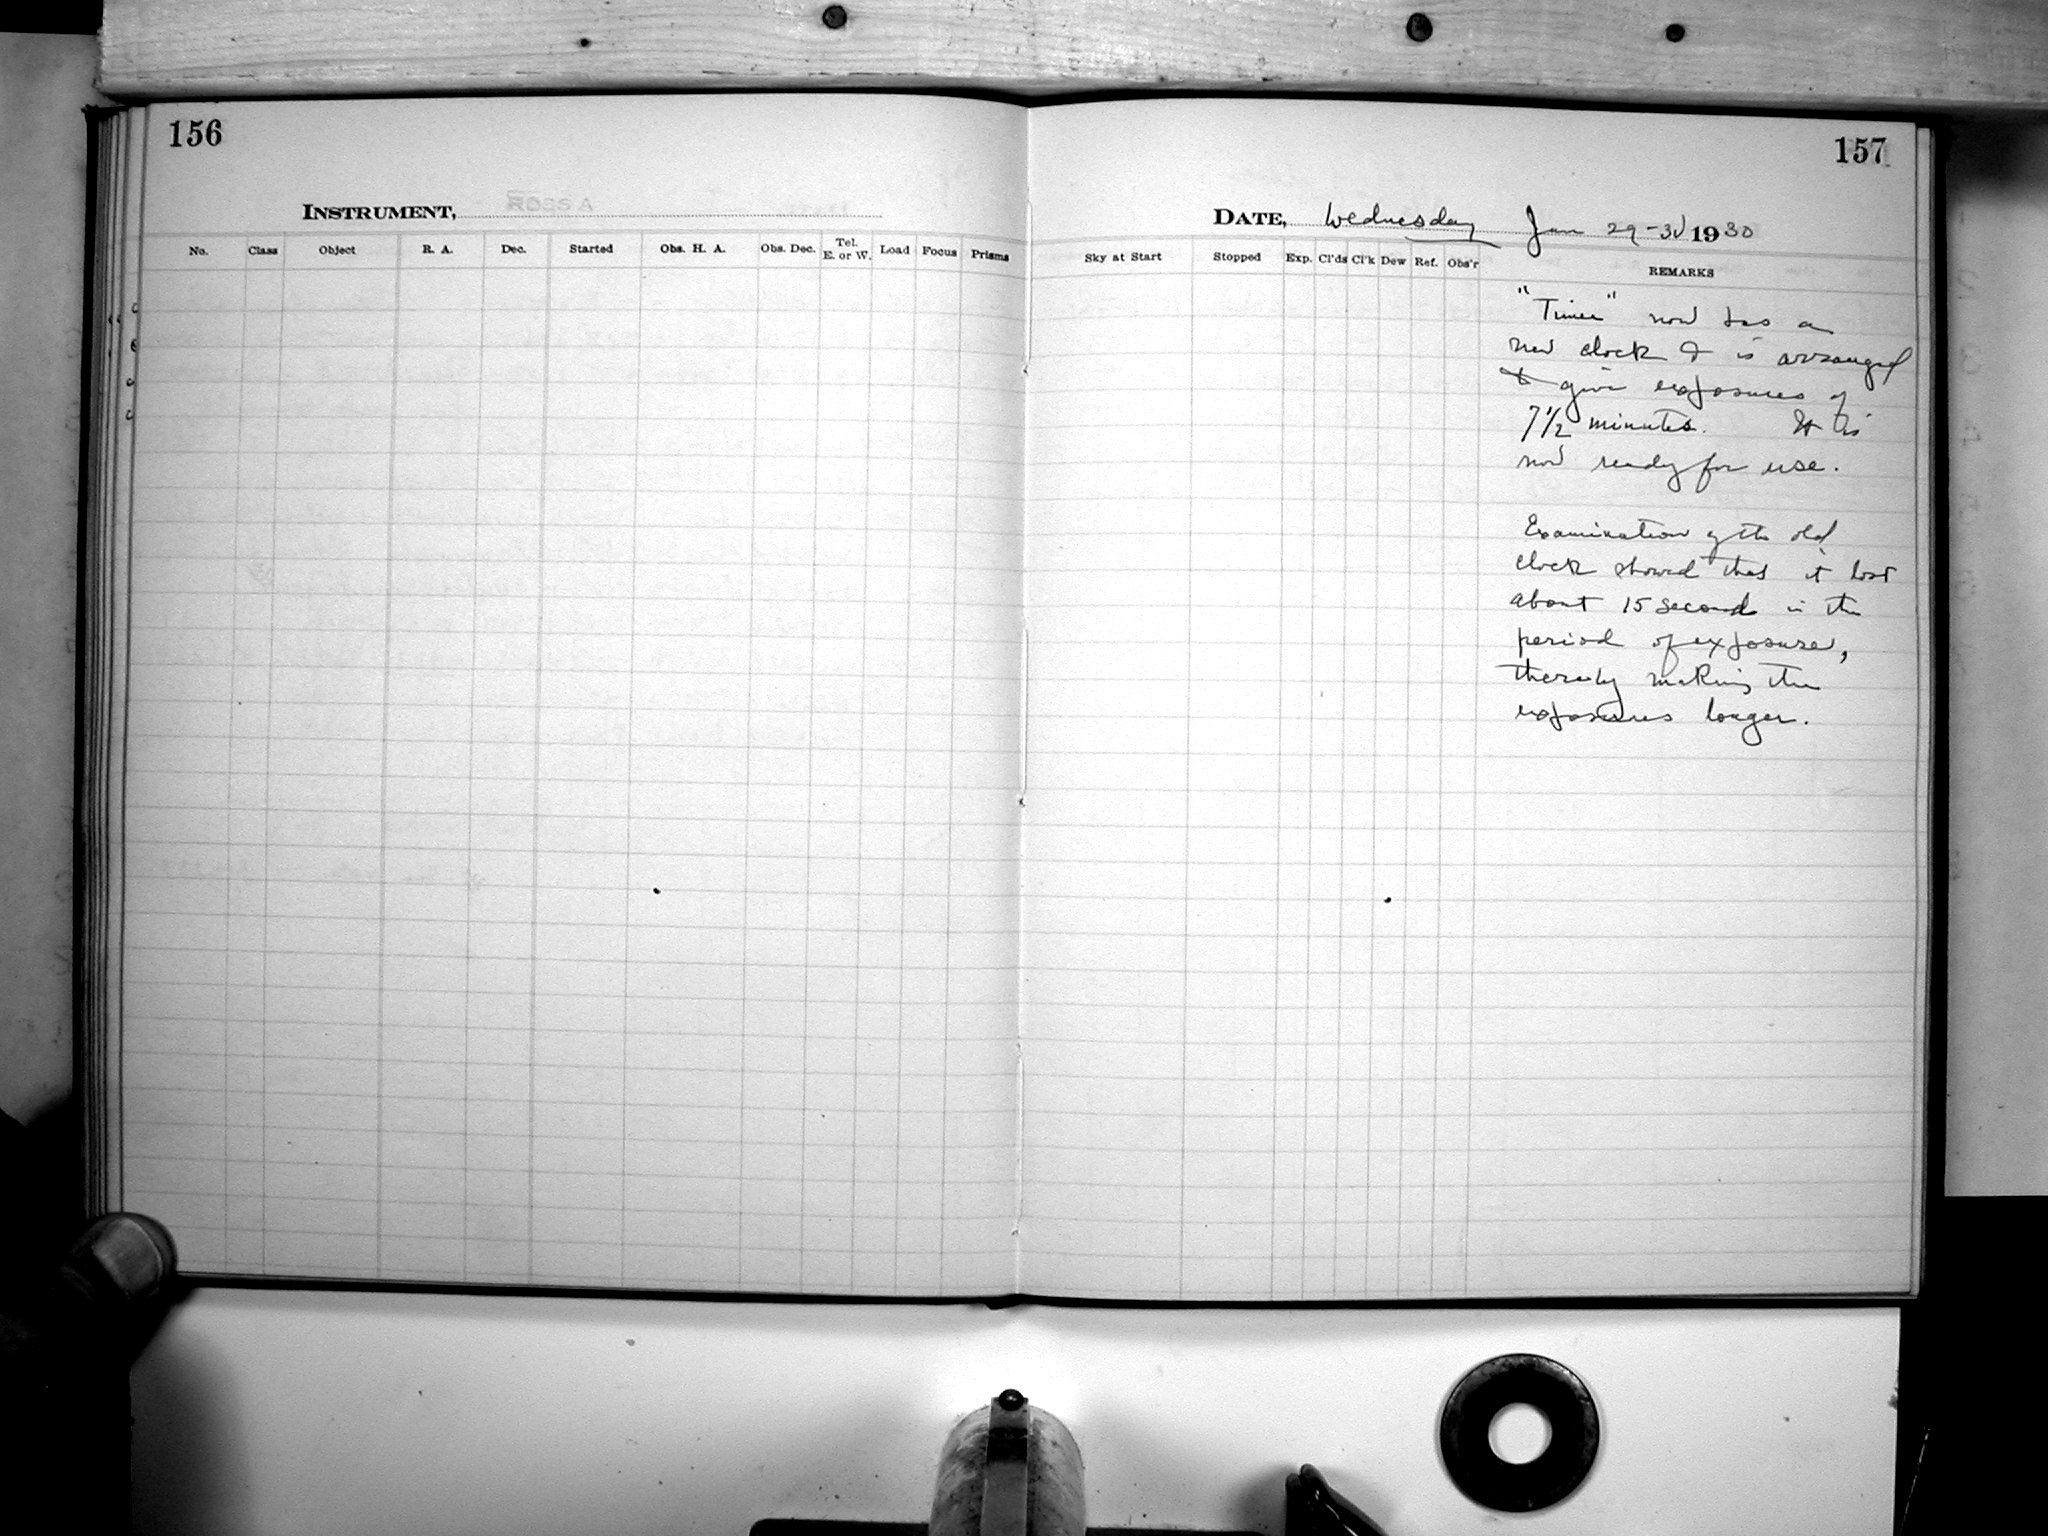 156
INSTRUMENT, ROSS A
No. Class Object R. A. Dec. Started Obs. H. A. Obs. Dec. Tel. E. or W. Load Focus Prisms
157
DATE, Wednesday Jan 29-30 1930
Sky at Start Stopped Exp. Cl'ds Cl'k Dew Ref. Obs'r REMARKS
"Timer" now has a
new clock & is arranged
to give exposures of
7 1/2 minutes. It is
now ready for use.
Examination of the old
clock showed that it lost
about 15 seconds in the
period of exposure,
thereby making the
exposures longer.